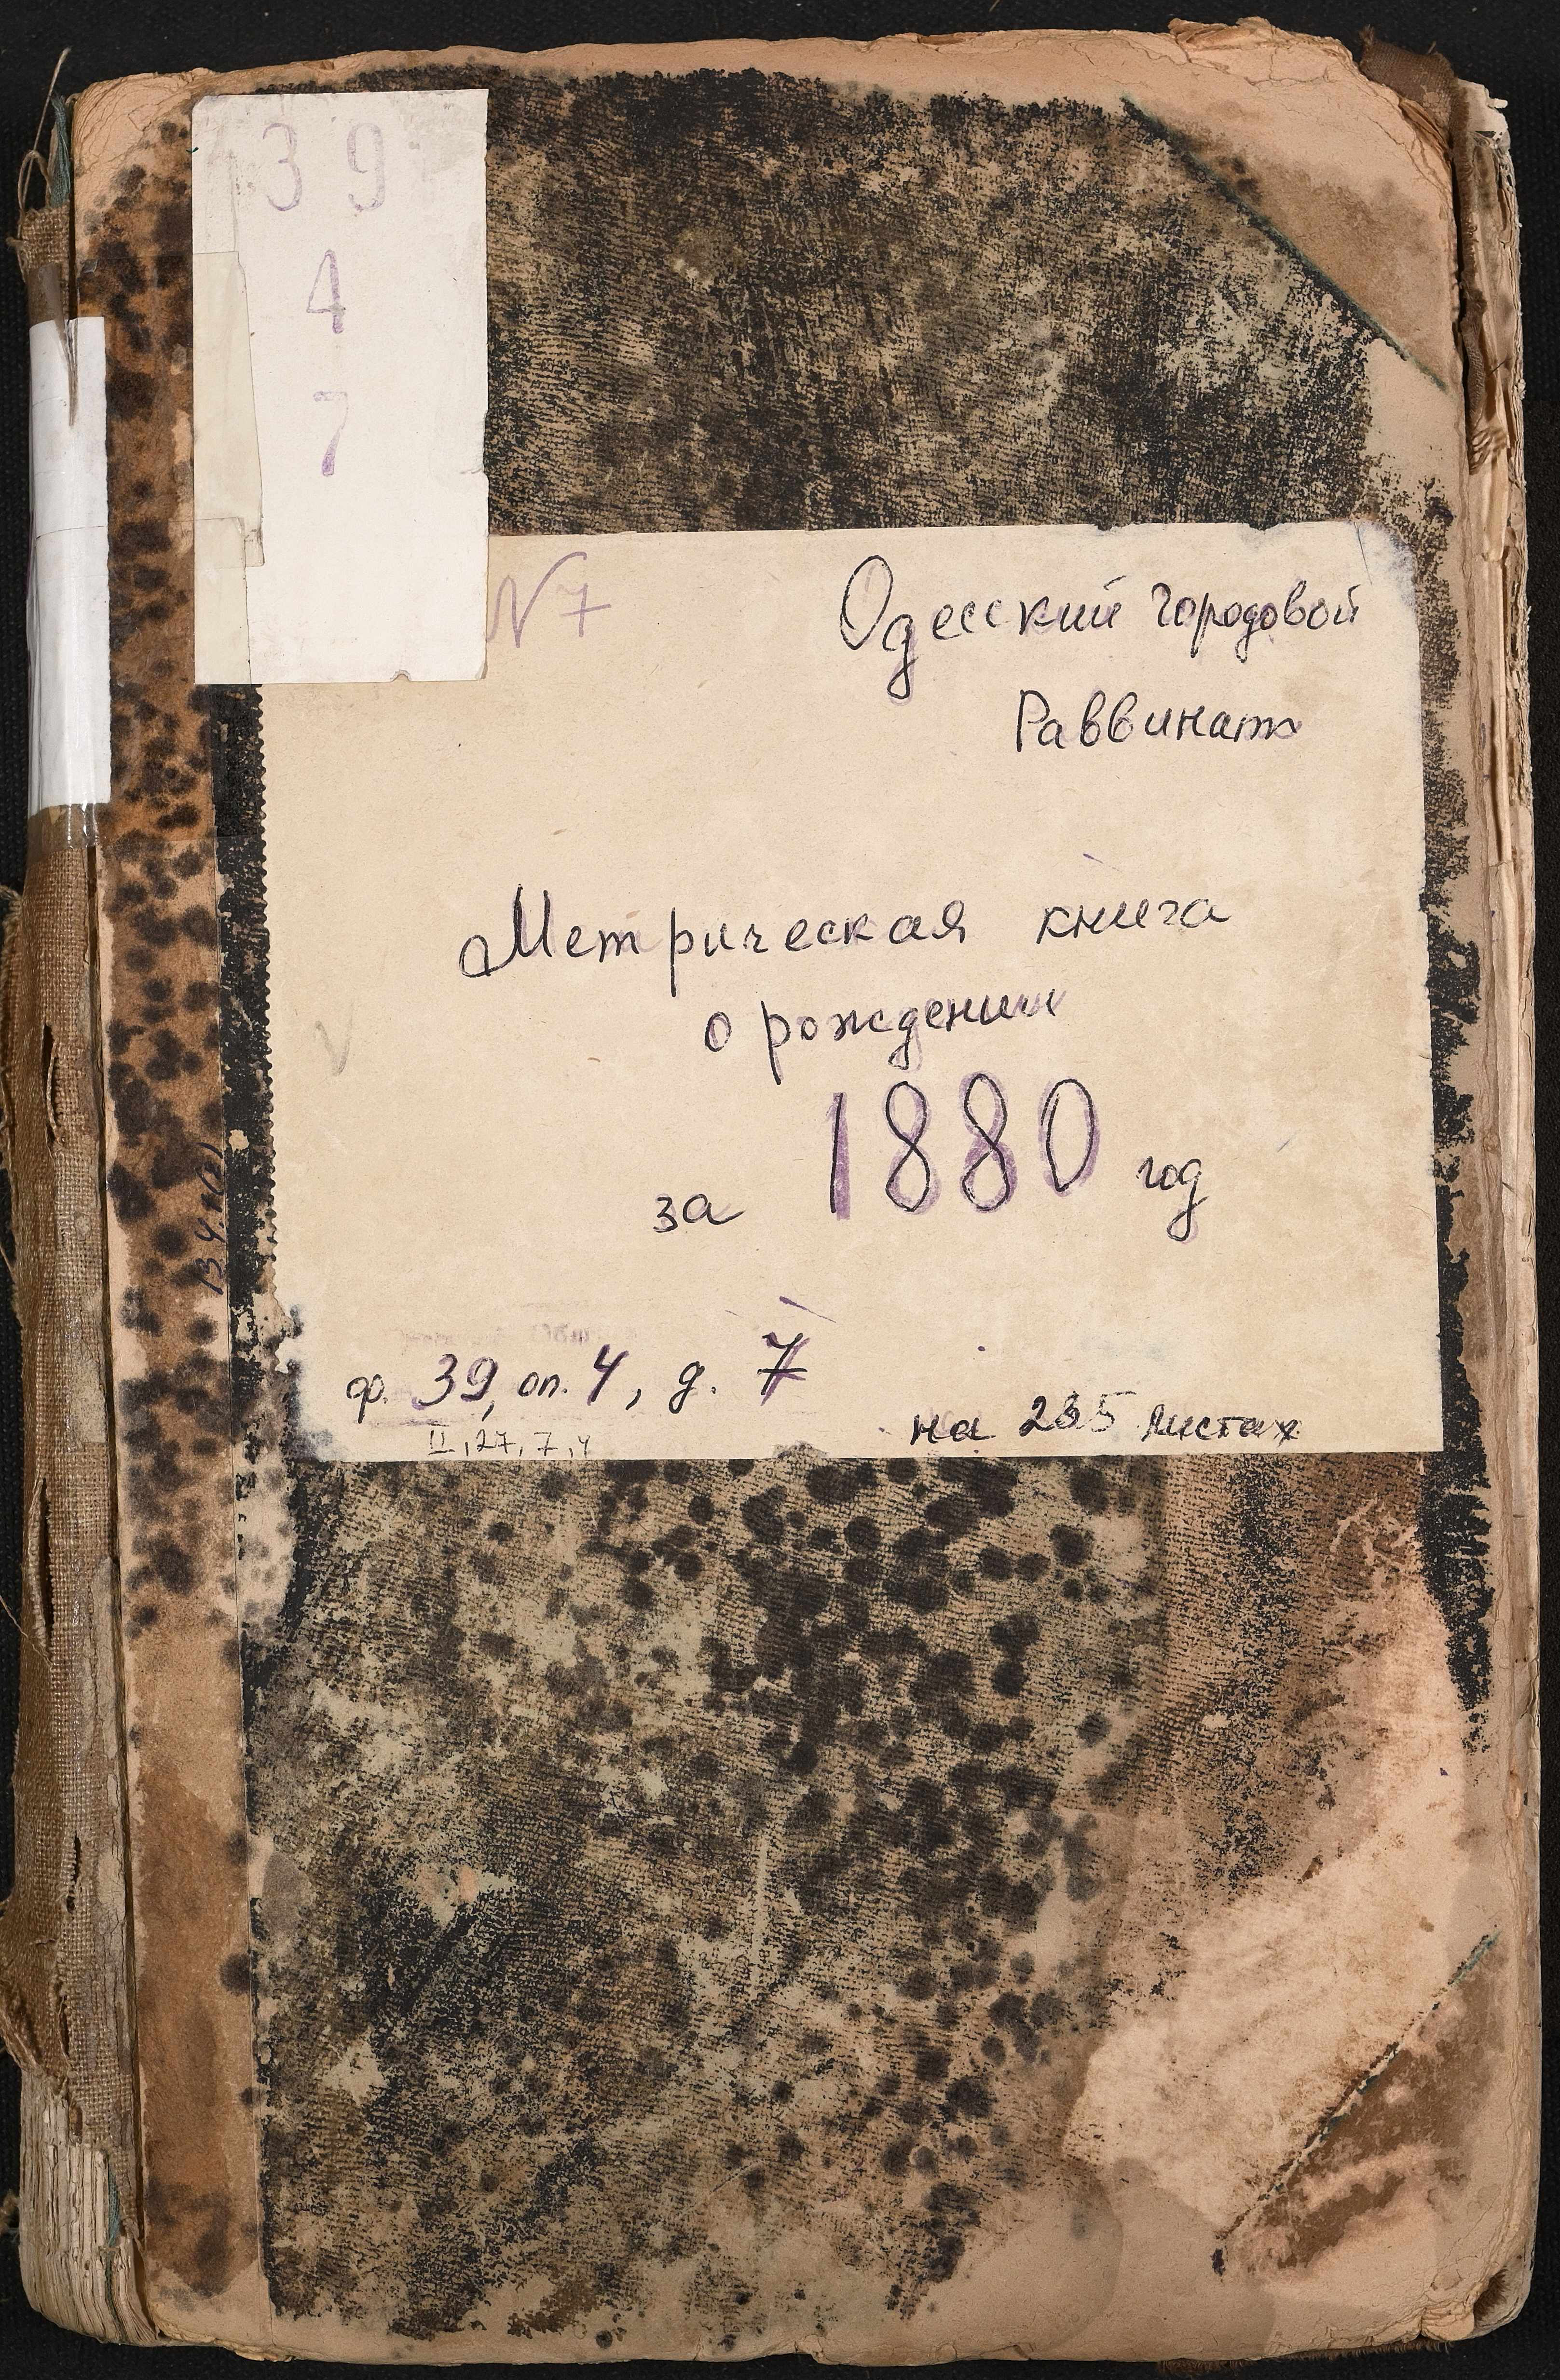 39
4
7
N7
Одесский городовой
Раввинатъ
Метрическая книга
о рождении
за 1880 год
ф. 39, оп. 4, д. 7
II, 27, 7, 4
на 235 листах